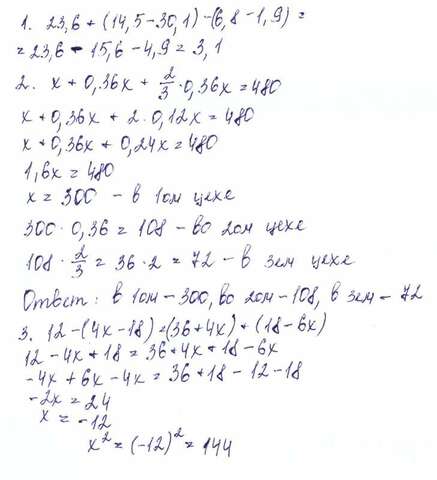 1. 23,6 + (14,5 - 30,1) - (6,8 - 1,9) =
= 23,6 - 15,6 - 4,9 = 3,1
2. x + 0,36x + 2/3 · 0,36x = 480
x + 0,36x + 2 · 0,12x = 480
x + 0,36x + 0,24x = 480
1,6x = 480
x = 300 - в 1ом цехе
300 · 0,36 = 108 - во 2ом цехе
108 · 2/3 = 36 · 2 = 72 - в 3ем цехе
Ответ: в 1ом - 300, во 2ом - 108, в 3ем - 72
3. 12 - (4x - 18) = (36 + 4x) + (18 - 6x)
12 - 4x + 18 = 36 + 4x + 18 - 6x
-4x + 6x - 4x = 36 + 18 - 12 - 18
-2x = 24
x = -12
x² = (-12)² = 144